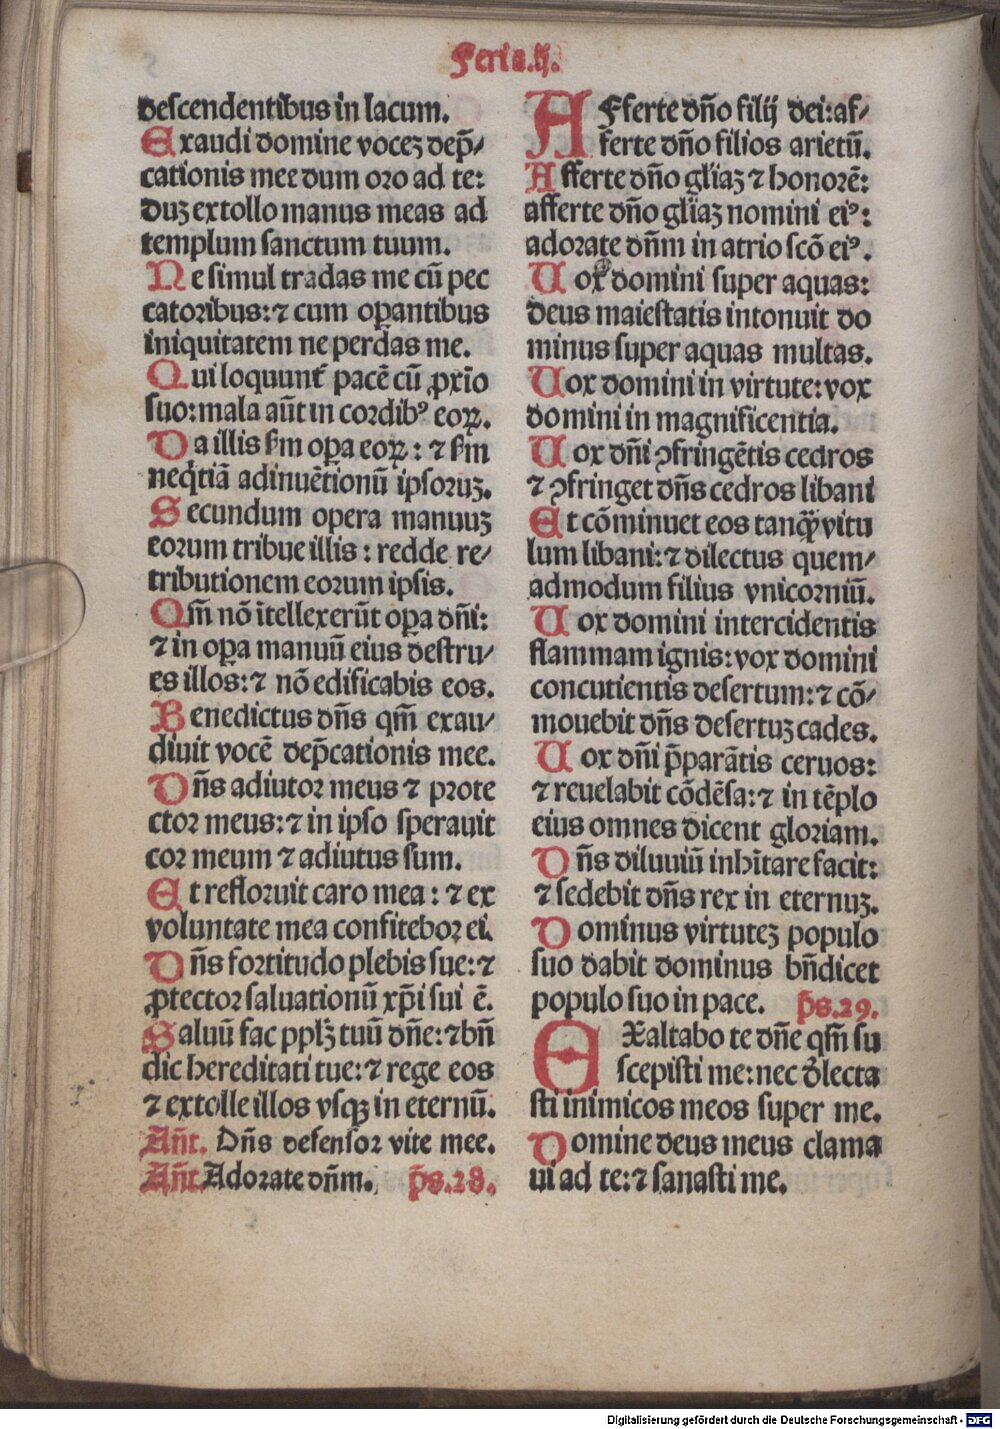 Feria.ij.
descendentibus in lacum.
Exaudi domine vocez dep̃⸗
cationis mee dum oro ad te:
duz extollo manus meas ad
templum sanctum tuum.
Ne simul tradas me cũ pec
catoribus: ⁊ cum oꝑantibus
iniquitatem ne perdas me.
Qui loquunt̃ pacẽ cũ ꝓxĩo
suo: mala aũt in cordib⁹ eoꝝ.
Da illis s̃m oꝑa eoꝝ: ⁊ s̃m
neq̃tiã adinuẽtionũ ipsoruz.
Secundum opera manuuz
eorum tribue illis: redde re⸗
tributionem eorum ipsis.
Qm̃ nõ ĩtellexerũt oꝑa dñi:
⁊ in oꝑa manuũ eius destru⸗
es illos: ⁊ nõ edificabis eos.
Benedictus dñs qm̃ exau⸗
diuit vocẽ dep̃cationis mee.
Dñs adiutor meus ⁊ prote
ctor meus: ⁊ in ipso sperauit
cor meum ⁊ adiutus sum.
Et refloruit caro mea: ⁊ ex
voluntate mea confitebor ei.
Dñs fortitudo plebis sue: ⁊
ꝓtector saluationũ xp̃i sui ẽ.
Saluũ fac pplʒ tuũ dñe: ⁊ bñ
dic hereditati tue: ⁊ rege eos
⁊ extolle illos vsqꝫ in eternũ.
Añt. Dñs defensor vite mee.
Añt. Adorate dñm. p̃s.28.
AFferte dño filij dei: af⸗
ferte dño filios arietũ.
Afferte dño gl̃iaz ⁊ honorẽ:
afferte dño gl̃iaz nomini ei⁹:
adorate dñm in atrio scõ ei⁹.
Uox domini super aquas:
deus maiestatis intonuit do
minus super aquas multas.
Uox domini in virtute: vox
domini in magnificentia.
Uox dñi ꝯfringẽtis cedros
⁊ ꝯfringet dñs cedros libani
Et cõminuet eos tanqꝫ̃ vitu
lum libani: ⁊ dilectus quem⸗
admodum filius vnicorniũ.
Uox domini intercidentis
flammam ignis: vox domini
concutientis desertum: ⁊ cõ⸗
mouebit dñs desertuz cades.
Uox dñi p̃parãtis ceruos:
⁊ reuelabit cõdẽsa: ⁊ in tẽplo
eius omnes dicent gloriam.
Dñs diluuiũ inhĩtare facit:
⁊ sedebit dñs rex in eternuz.
Dominus virtutez populo
suo dabit dominus bñdicet
populo suo in pace. p̃s.29.
EXaltabo te dñe qm̃ su
scepisti me: nec d̾lecta
sti inimicos meos super me.
Domine deus meus clama
ui ad te: ⁊ sanasti me.
Digitalisierung gefördert durch die Deutsche Forschungsgemeinschaft - DFG